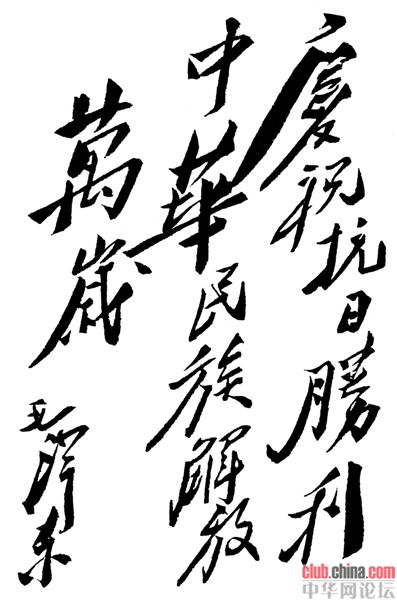 慶祝抗日勝利
中華民族解放
萬歲
毛澤东
club.china.com
中华网论坛